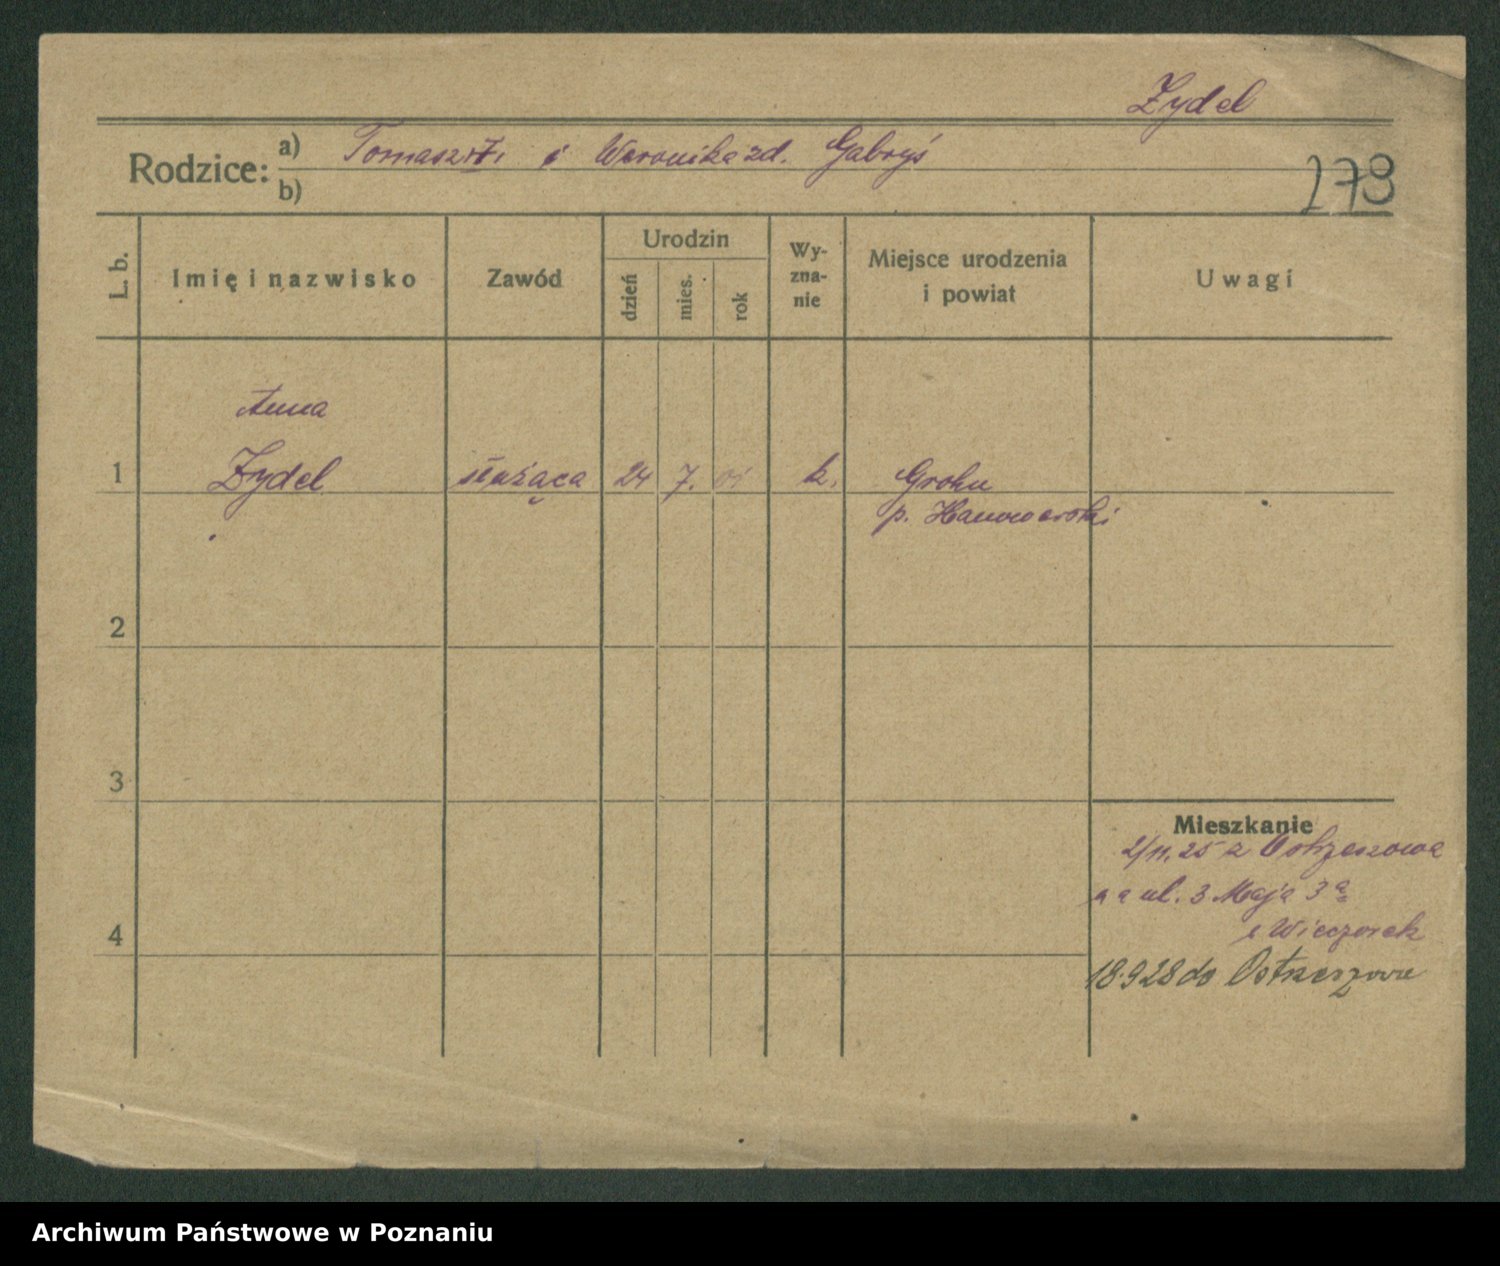 Zydel
Rodzice: a) Tomasz i Weronika zd. Gabryś
b)
179
L. b.
Imię i nazwisko
Zawód
Urodzin
dzień
mies.
rok
Wy-
zna-
nie
Miejsce urodzenia
i powiat
Uwagi
Anna
1 Zydel służąca 24 7. 01 k. Grohn
p. Hanowerski
2
3
Mieszkanie
2/11.25 z Ostrzeszowa
na ul. 3 Maja 3a
4
u Wieczorek
18.9 28 do Ostrzeszowa
Archiwum Państwowe w Poznaniu